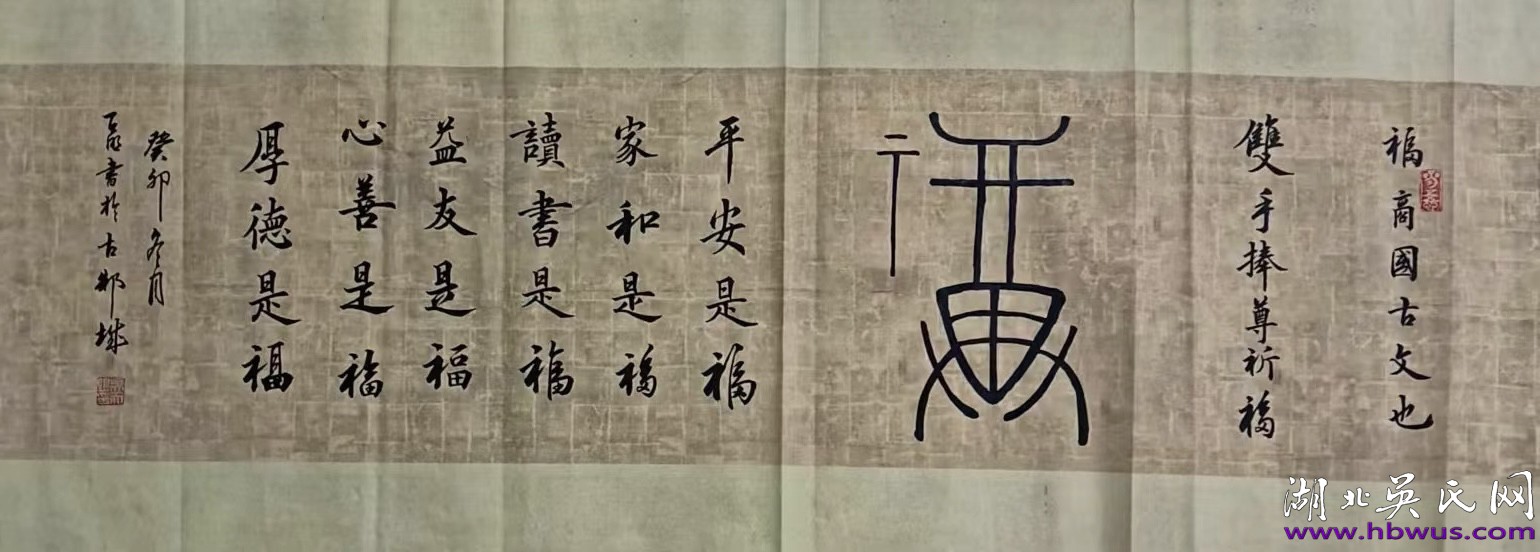 福商國古文也
雙手捧尊祈福
福
平安是福
家和是福
讀書是福
益友是福
心善是福
厚德是福
癸卯冬月
書於古鄂城
湖北吴氏网
www.hbwus.com